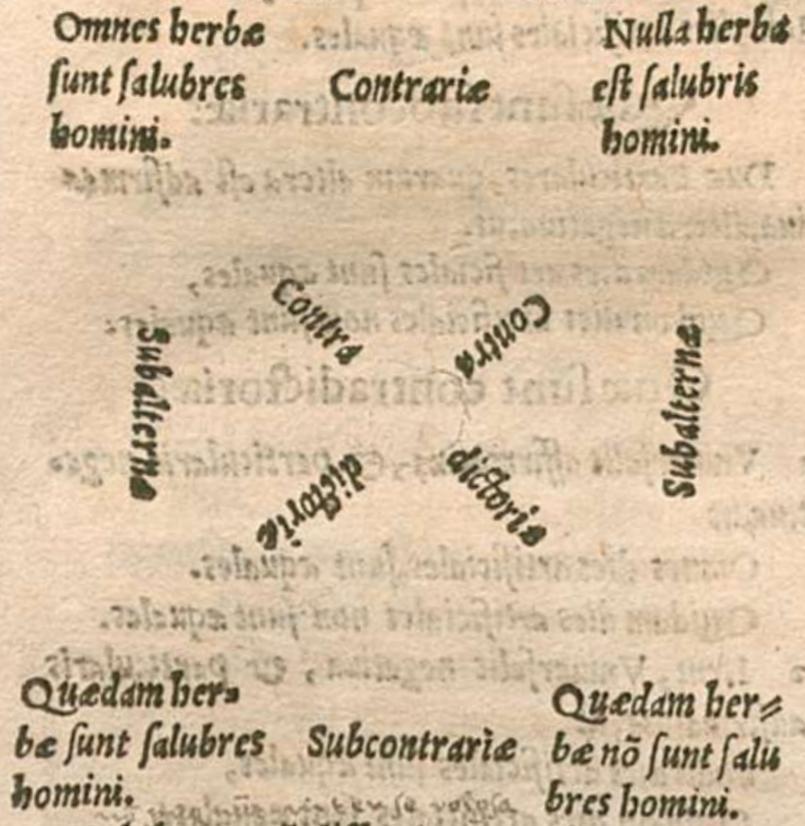 Omnes herbæ
ſunt ſalubres
homini.
Contrariæ
Nulla herba
eſt ſalubris
homini.
Contra
Contra
Subalternæ
Subalternæ
dictoriæ
dictoriæ
Quædam her⸗
bæ ſunt ſalubres
homini.
Subcontrariæ
Quædam her⸗
bæ nõ ſunt ſalu
bres homini.